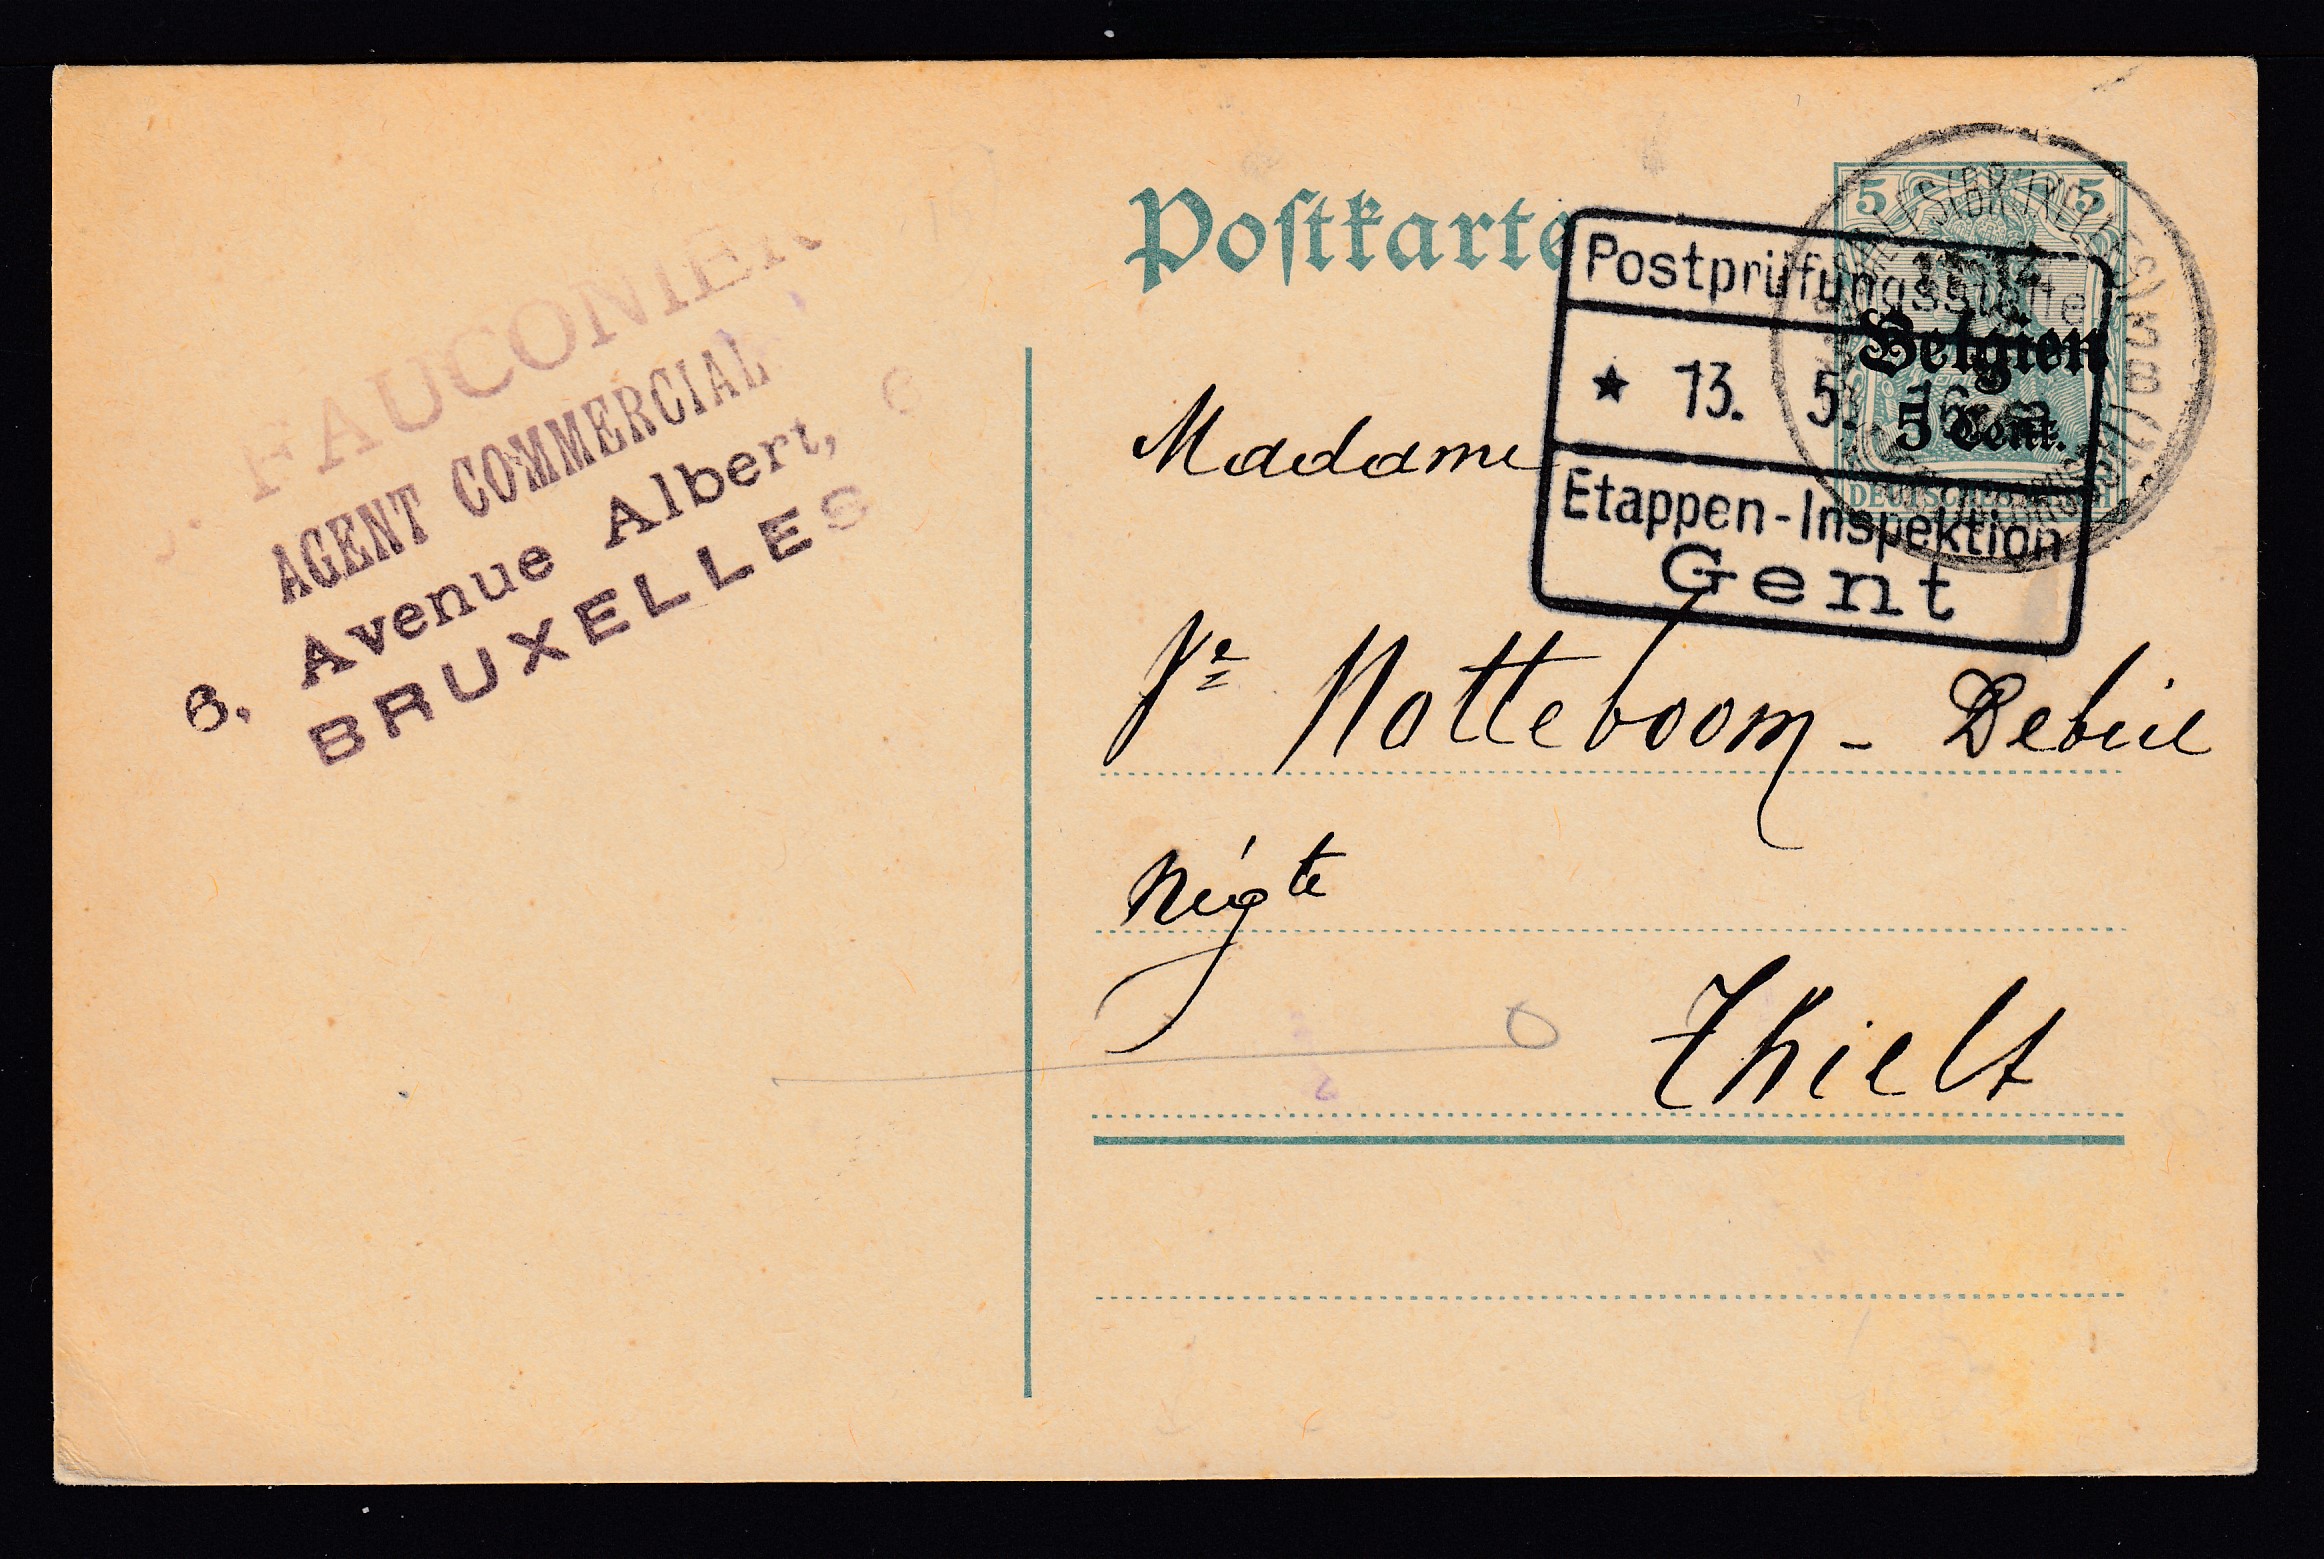 FAUCONIER
AGENT COMMERCIAL
6, Avenue Albert, 6
BRUXELLES
Postkarte
5 5
Belgien
5 Cent.
DEUTSCHES REICH
Postprüfungsstelle
* 13. 5. 16
Etappen-Inspektion
Gent
Madame
Ve Notteboom - Debeil
Négte
Thielt